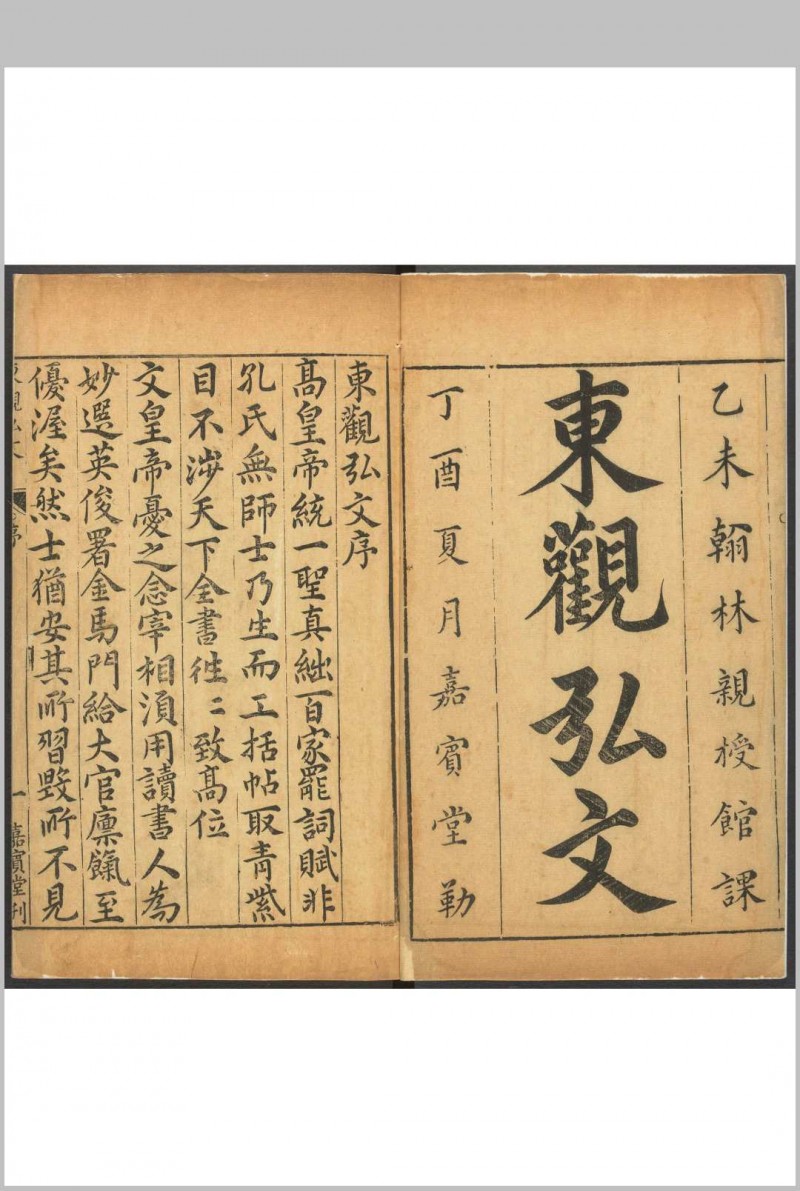 乙未翰林親授館課
東觀弘文
丁酉夏月嘉賓堂勒
東觀弘文序
高皇帝統一聖真絀百家罷詞賦非
孔氏無師士乃生而工括帖取青紫
目不涉天下全書徃〻致高位
文皇帝憂之念宰相須用讀書人為
妙選英俊署金馬門給大官廪餼至
優渥矣然士猶安其所習毀所不見
東觀弘文
序
一
嘉賓堂刋